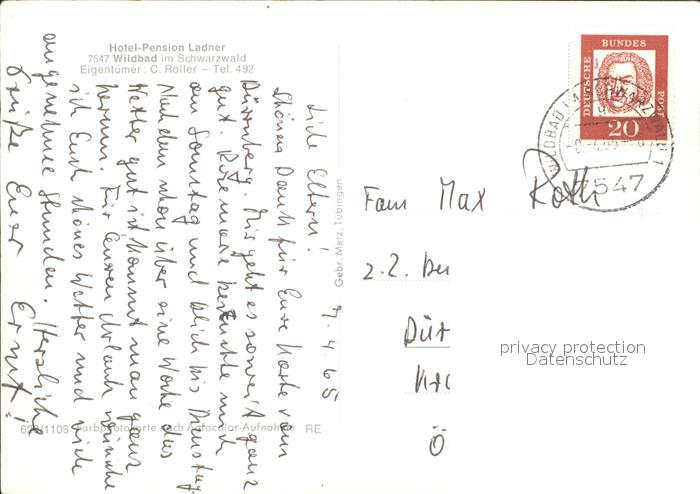 Hotel-Pension Ladner
7547 Wildbad im Schwarzwald
Eigentümer: C. Roller — Tel. 492
Liebe Eltern! 7.4.65
Schönen Dank für Eure Karte vom
Dürrnberg. Mir geht es soweit ganz
gut. Rosemarie besuchte mich
am Sonntag und blieb bis Dienstag.
Nachdem nun über eine Woche das
Wetter gut ist kommt man ganz
herum. Für Euren Urlaub wünsche
ich Euch schönes Wetter und viele
angenehme Stunden. Herzliche
Grüße Euer Ernst!
Gebr. Metz, Tübingen
Farbphotokarte nach Agfacolor-Aufnahme RE
DEUTSCHE
BUNDES
POST
20
WILDBAD
7547
Fam Max Roth
z.Z.
Dür
Ö
privacy protection
Datenschutz